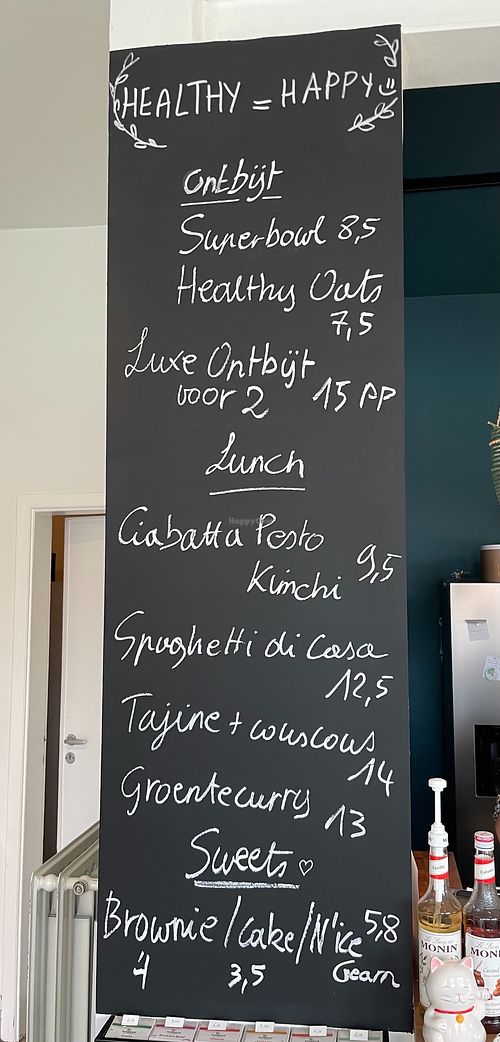 HEALTHY = HAPPY
Ontbijt
Superbowl 8,5
Healthy Oats
7,5
Luxe Ontbijt
voor 2 15 PP
Lunch
Ciabatta Pesto
Kimchi 9,5
Spaghetti di Casa
12,5
Tajine + couscous
14
Groentecurry 13
Sweets ♡
Brownie/Cake/N'ice 5,8
4 3,5 Cream
MONIN
MONIN